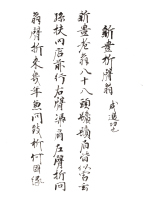 新豐折臂翁 戒邊功也
新豐老翁八十八頭鬢鬚眉皆似雪玄
孫扶向店前行右臂憑肩左臂折問
翁臂折來幾年兼問致折何因緣